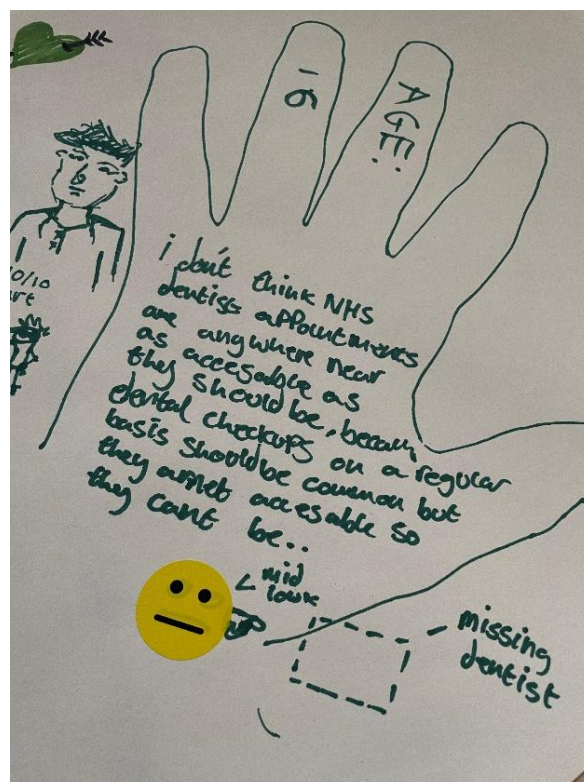 16
AGE:
10/10
art
i don't think NHS
dentist appointments
are anywhere near
as accesable as
they should be, becaus
dental checkups on a regular
basis should be common but
they arnet accesable so
they cant be..
< mid
missing
dentist